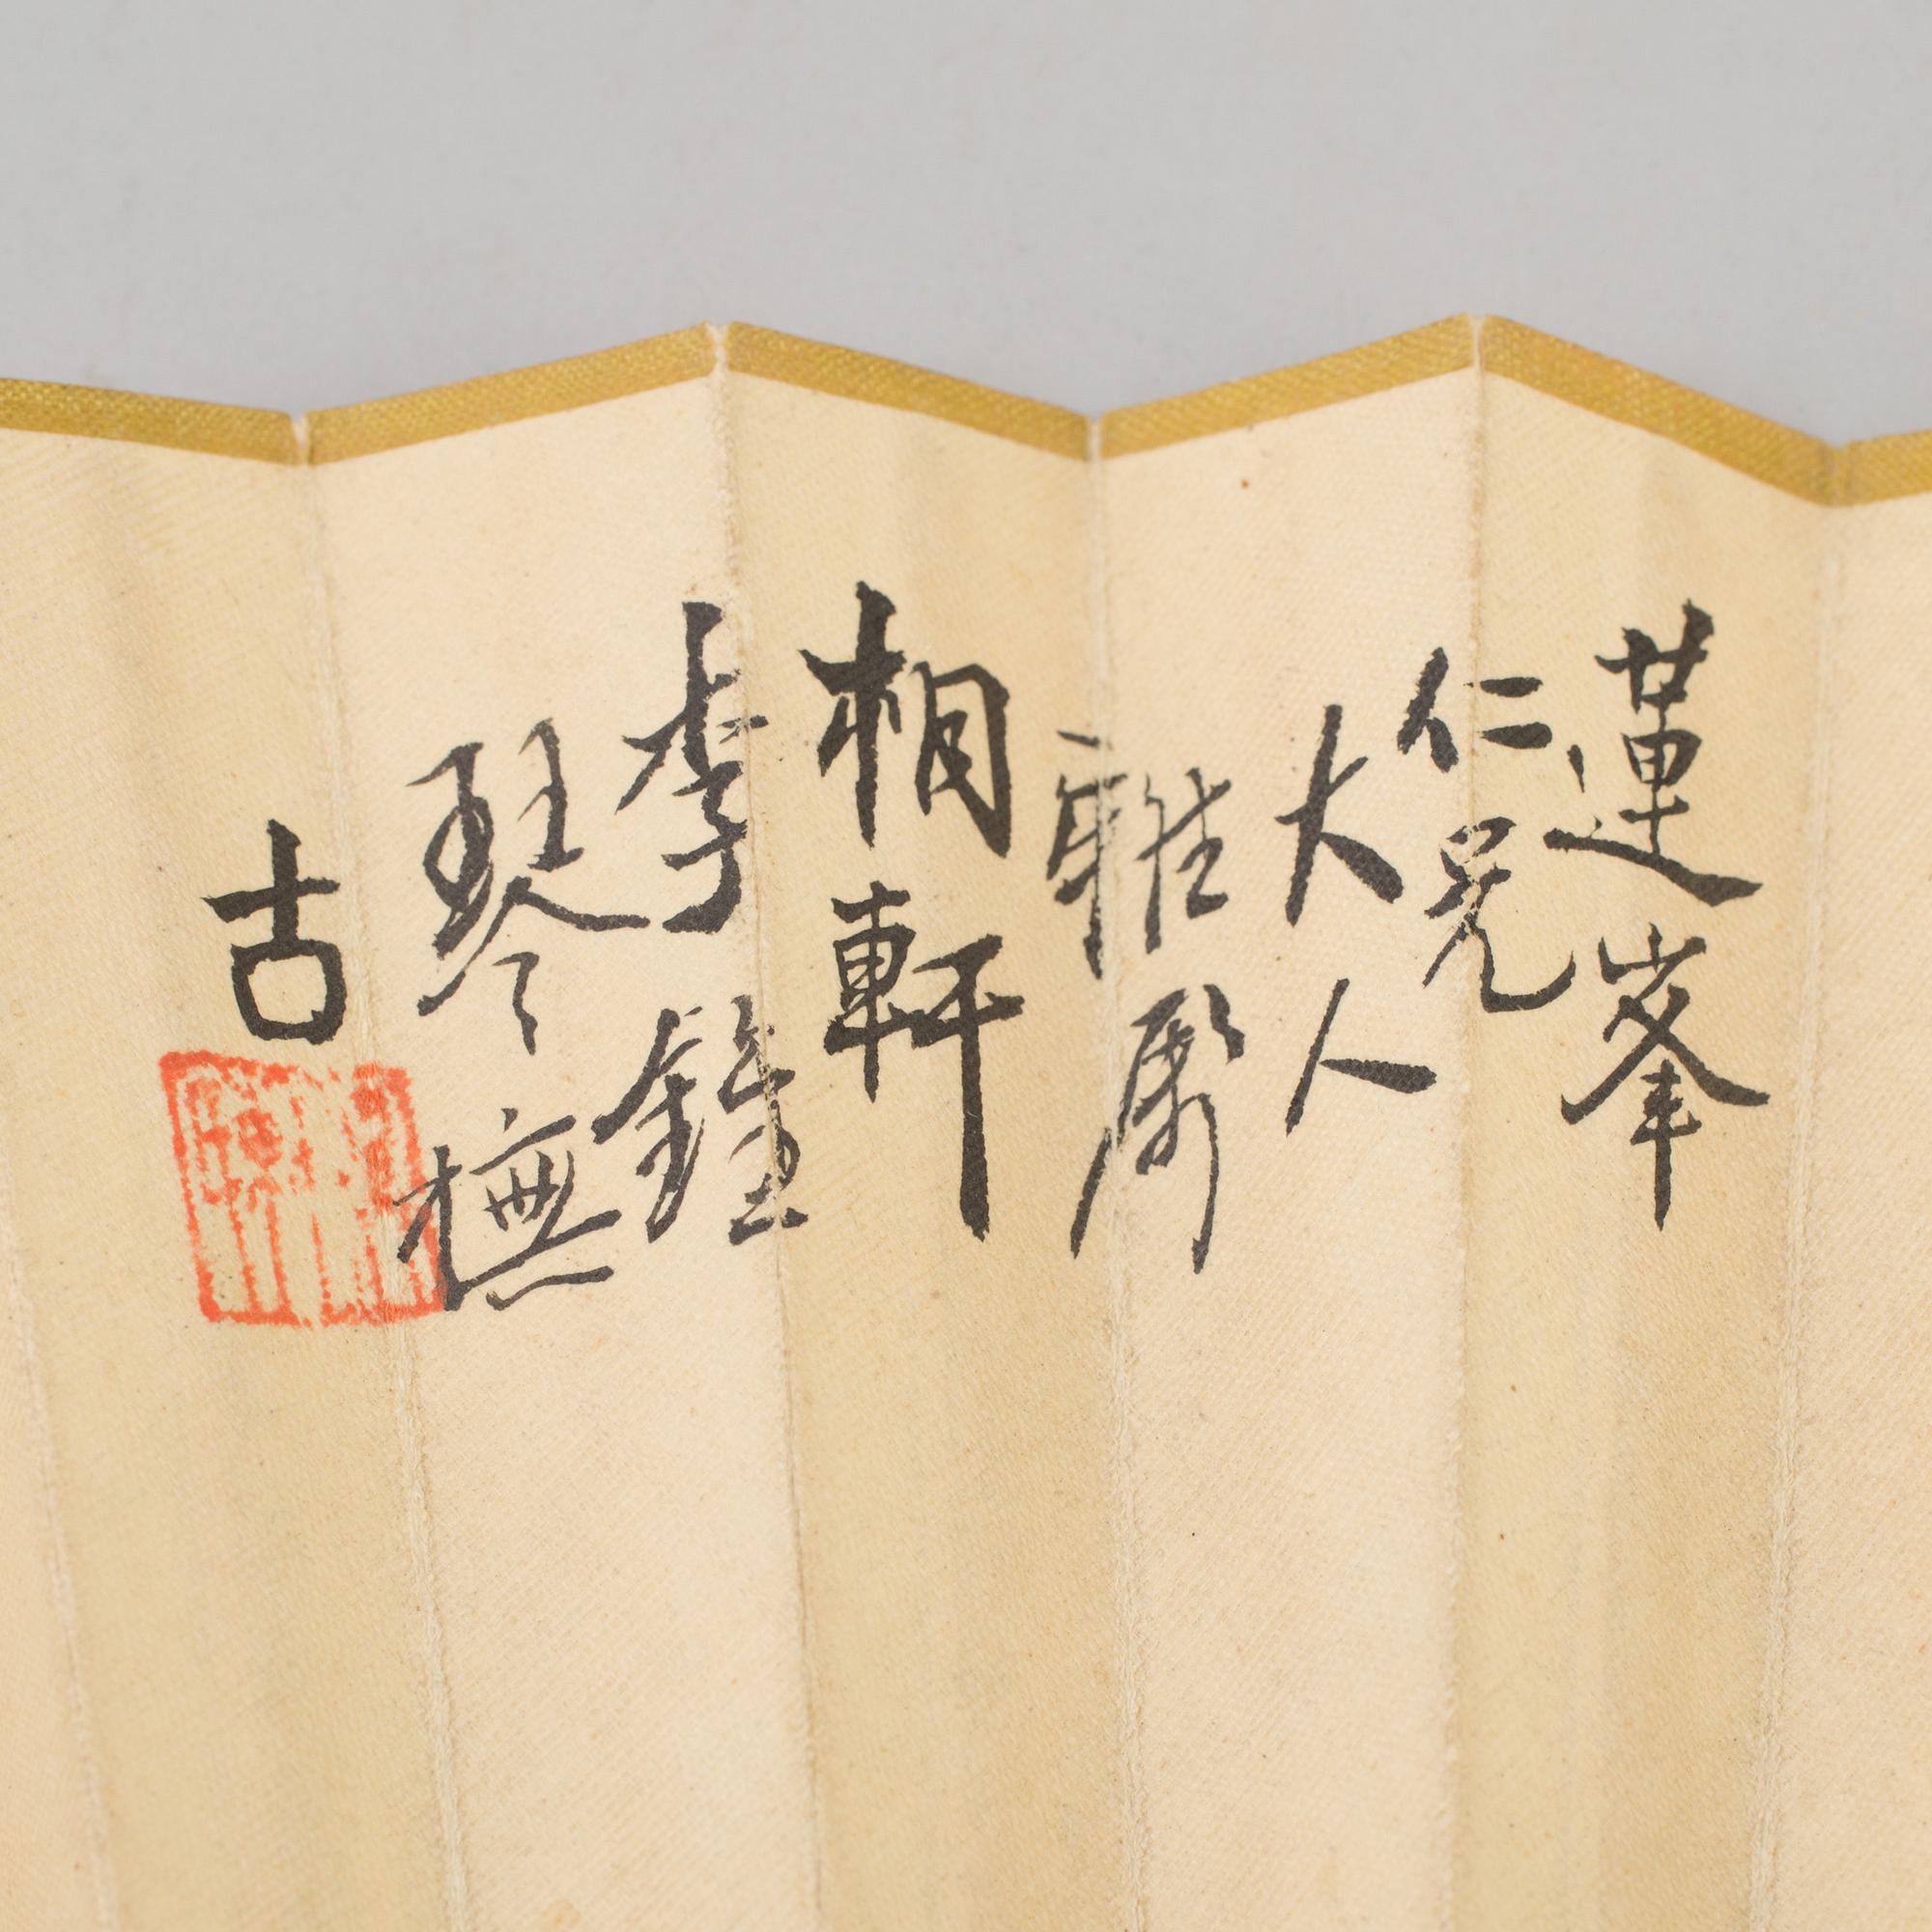 蓮峯
仁兄
大人
雅屬
桐軒
李鐘
琴撫
古